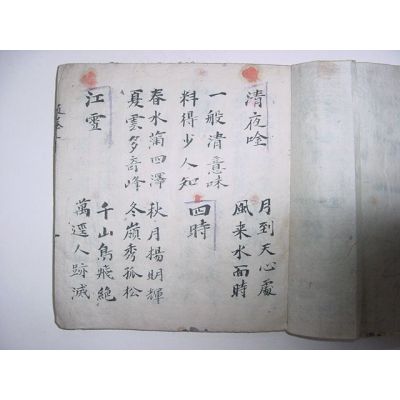 清夜唫
月到天心處
風来水面時
一般清意味
料得少人知
四時
春水滿四澤
夏雲多奇峰
秋月揚明輝
冬嶺秀孤松
江雪
千山鳥飛絶
萬逕人踪滅